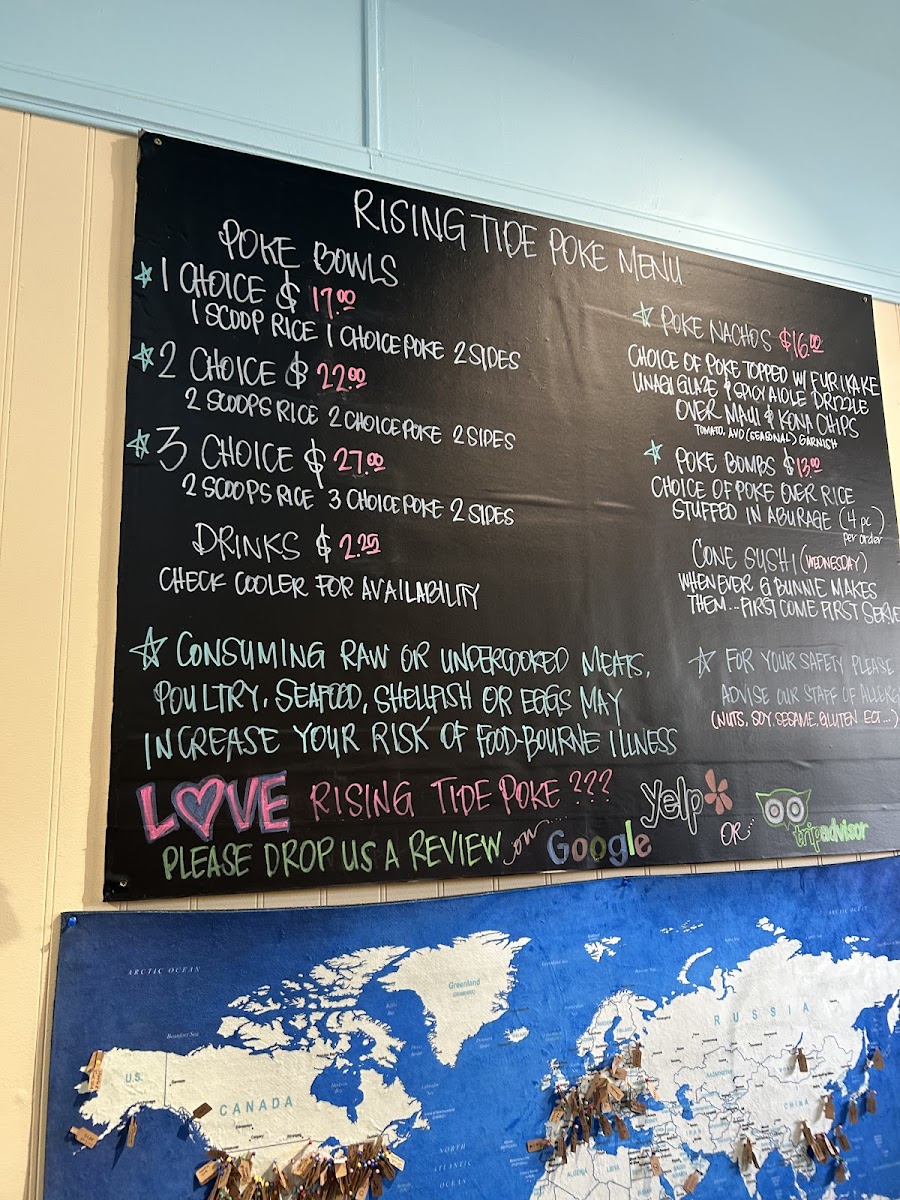 RISING TIDE POKE MENU
POKE BOWLS
☆ 1 CHOICE $ 17.00
1 SCOOP RICE 1 CHOICE POKE 2 SIDES
☆ 2 CHOICE $ 22.00
2 SCOOPS RICE 2 CHOICE POKE 2 SIDES
☆ 3 CHOICE $ 27.00
2 SCOOPS RICE 3 CHOICE POKE 2 SIDES
DRINKS $ 2.25
CHECK COOLER FOR AVAILABILITY
☆ POKE NACHOS $16.00
CHOICE OF POKE TOPPED W/ FURIKAKE
UNAGI GLAZE & SPICY AIOLE DRIZZLE
OVER MAUI & KONA CHIPS
TOMATO, AND (SEASONAL) GARNISH
☆ POKE BOMBS $13.00
CHOICE OF POKE OVER RICE
STUFFED IN ABURAGE (4 pc
per order)
CONE SUSHI (WEDNESDAY)
WHENEVER G BUNNIE MAKES
THEM... FIRST COME FIRST SERVE
☆ CONSUMING RAW OR UNDERCOOKED MEATS,
POULTRY, SEAFOOD, SHELLFISH OR EGGS MAY
INCREASE YOUR RISK OF FOOD-BOURNE ILLNESS
☆ FOR YOUR SAFETY PLEASE
ADVISE OUR STAFF OF ALLERG
(NUTS, SOY, SESAME, GLUTEN ECT...)
LOVE RISING TIDE POKE ???
PLEASE DROP US A REVIEW on Google yelp OR tripadvisor
ARCTIC OCEAN
ARCTIC OCEAN
Greenland
RUSSIA
U.S.
CANADA
CHINA
NORTH
ATLANTIC
OCEAN
ALGERIA